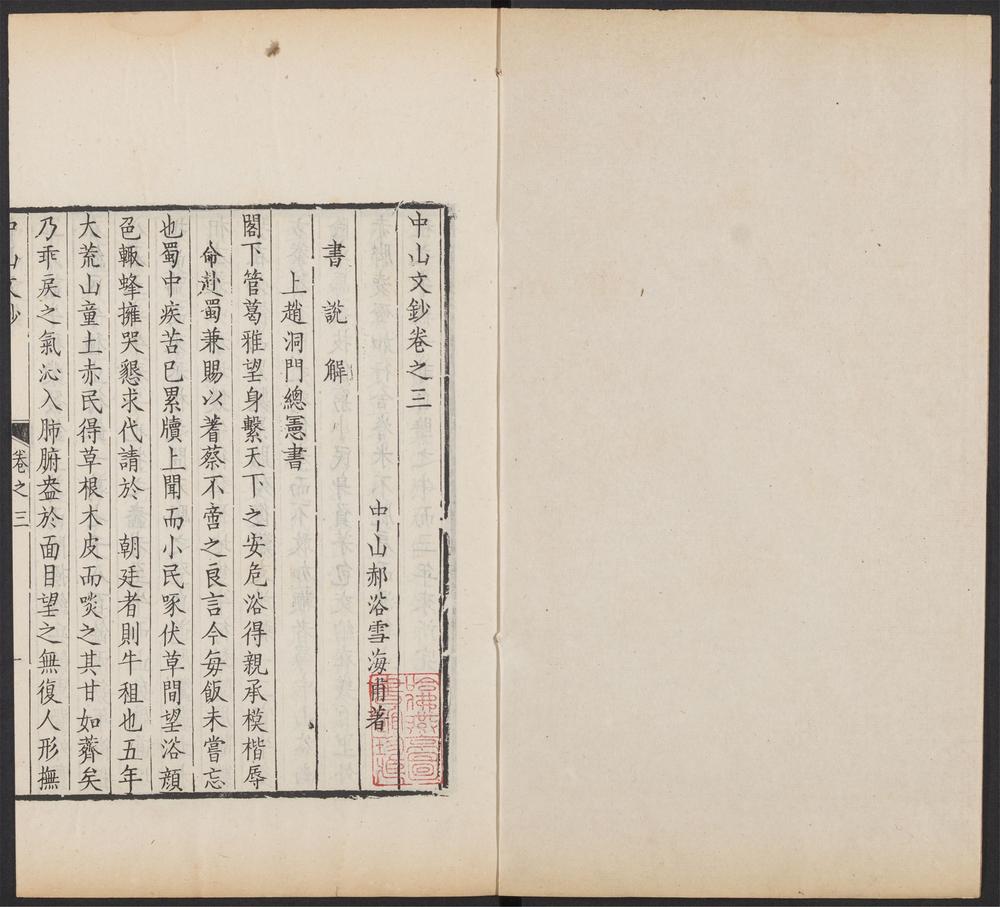 中山文鈔卷之三
中山郝浴雪海甫著
書說解
上趙洞門總憲書
閣下管葛雅望身繫天下之安危浴得親承模楷辱
命赴蜀兼賜以蓍蔡不啻之良言今每飯未嘗忘
也蜀中疾苦已累牘上聞而小民啄伏草間望浴顏
色輙蜂擁哭懇求代請於 朝廷者則牛租也五年
大荒山童土赤民得草根木皮而啖之其甘如薺矣
乃乖戾之氣沁入肺腑盎於面目望之無復人形撫
中山文鈔
卷之三
一
哈佛燕京圖書館珍藏